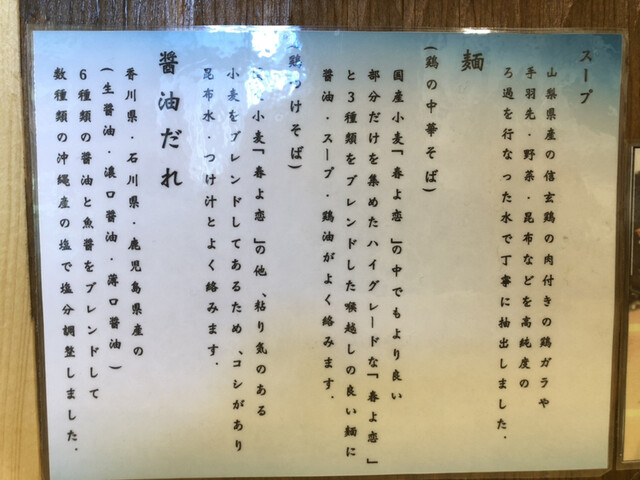 スープ
山梨県産の信玄鶏の肉付きの鶏ガラや
手羽先・野菜・昆布などを高純度の
ろ過を行なった水で丁寧に抽出しました.
麺
(鶏の中華そば)
国産小麦「春よ恋」の中でもより良い
部分だけを集めたハイグレードな「春よ恋」
と3種類をブレンドした喉越しの良い麺に
醬油・スープ・鶏油がよく絡みます.
(鶏つけそば)
小麦「春よ恋」の他、粘り気のある
小麦をブレンドしてあるため、コシがあり
昆布水・つけ汁とよく絡みます.
醬油だれ
香川県・石川県・鹿児島県産の
(生醬油・濃口醬油・薄口醬油)
6種類の醬油と魚醬をブレンドして
数種類の沖縄産の塩で塩分調整しました.